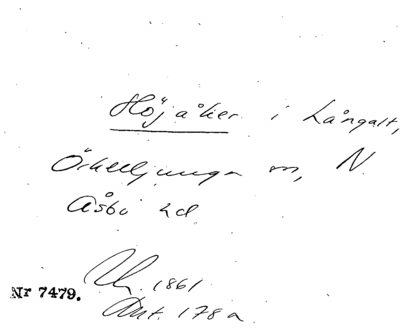 Höjaker i Långalt,
Örkelljunga sn, N.
Åsbo hd.
Uh. 1861
Nr 7479.
Ant. 178 a